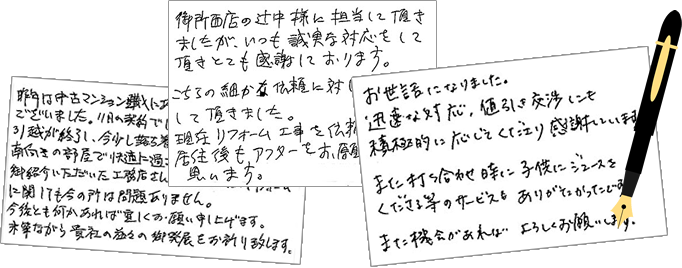 御所西店の辻中様に担当して頂き
ましたが、いつも誠実な対応をして
頂きとても感謝しております。
こちらの細かな依頼に対し
して頂きました。
現在リフォーム工事を依頼
居住後も、アフターをお願
思います。
昨年は中古マンション購入に
ございました。11月の契約で
引越が終了し、今少し
南向きの部屋で快適に過
御紹介いただいた工務店さん
に関しても今の所は問題ありません。
今後とも何かあれば宜しくお願い申し上げます。
末筆ながら貴社の益々の御発展をお祈り致します。
お世話になりました。
迅速な対応、値引き交渉にも
積極的に応じてくださり感謝いたします
また打ち合わせ時に子供にジュースを
くださる等のサービスも ありがたかったです
また機会があれば よろしくお願いします。